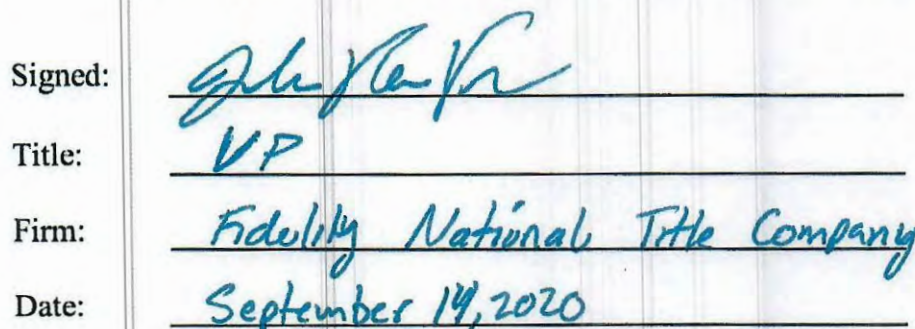 Signed:
Title: VP
Firm: Fidelity National Title Company
Date: September 14, 2020